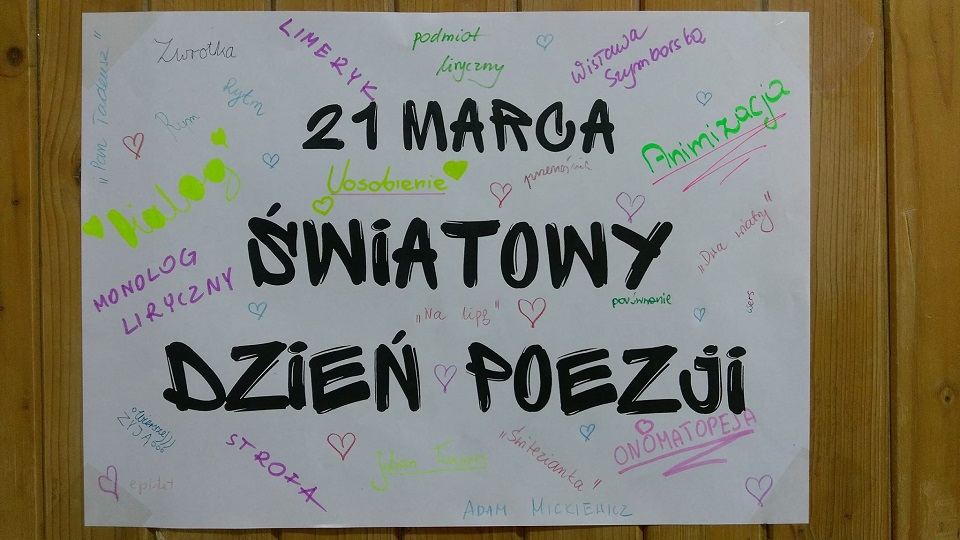 Zwrotka
LIMERYK
podmiot
liryczny
Wisława
Szymborska
"Pan Tadeusz"
Rytm
Rym
21 MARCA
Animizacja
Dialog
Uosobienie
przenośnia
ŚWIATOWY
"Dwa wiatry"
MONOLOG
LIRYCZNY
"Na lipę"
porównanie
wers
DZIEŃ POEZJI
ŻYJĄ
STROFA
Julian Tuwim
"Świtezianka"
ONOMATOPEJA
epitet
ADAM MICKIEWICZ